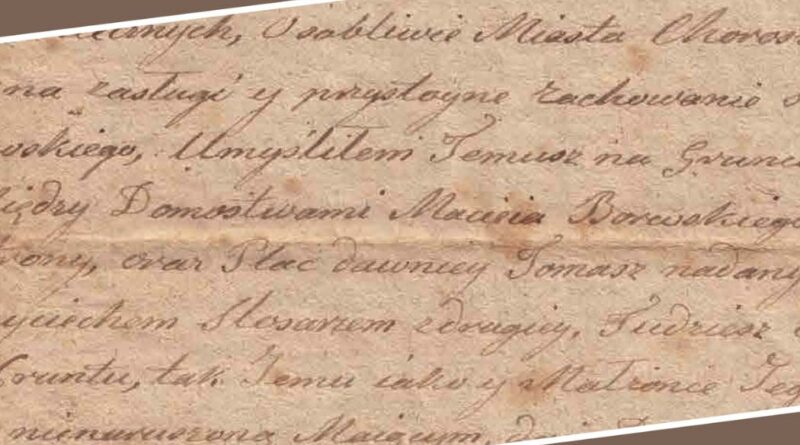 Osobliwie Miasta Choros
na zasługi y przystoyne zachowanie s
oskiego, Umyśliłem Temusz na Grunc
iędzy Domostwami Macieia Borewskiego
rony, oraz Plac dawniey Tomasz nadany
yciechem Slosarzem zdrugiey, Tudziesz
Gruntu, tak Temu iako y Małżonie Teg
nienaruszoną